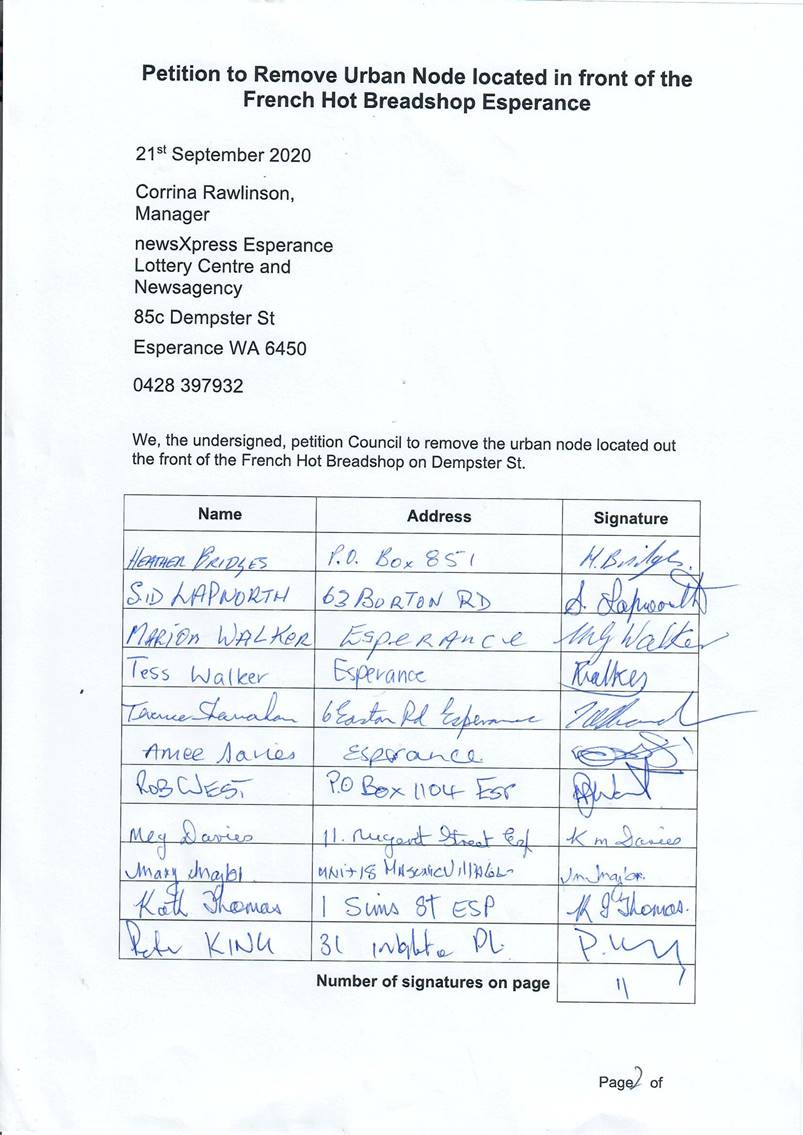 Petition to Remove Urban Node located in front of the
French Hot Breadshop Esperance
21st September 2020
Corrina Rawlinson,
Manager
newsXpress Esperance
Lottery Centre and
Newsagency
85c Dempster St
Esperance WA 6450
0428 397932
We, the undersigned, petition Council to remove the urban node located out
the front of the French Hot Breadshop on Dempster St.
Name Address Signature
HEATHER BRIDGES P.O. Box 851 H. Bridges.
SID LAPWORTH 63 BURTON RD S. Lapworth
MARION WALKER ESPERANCE MG Walker
Tess Walker Esperance Walker
Terence 6 Easton Rd Esperance
Amee Davies Esperance
ROB WEST P.O Box 1104 ESP
Meg Davies 11. Nugent Street Esp K M Davies
Mary UNIT 18 MASONIC VILLAGE
Kath Thomas 1 Sims ST ESP K J Thomas.
Peter KING 31 PL. P. King
Number of signatures on page 11
Page 2 of